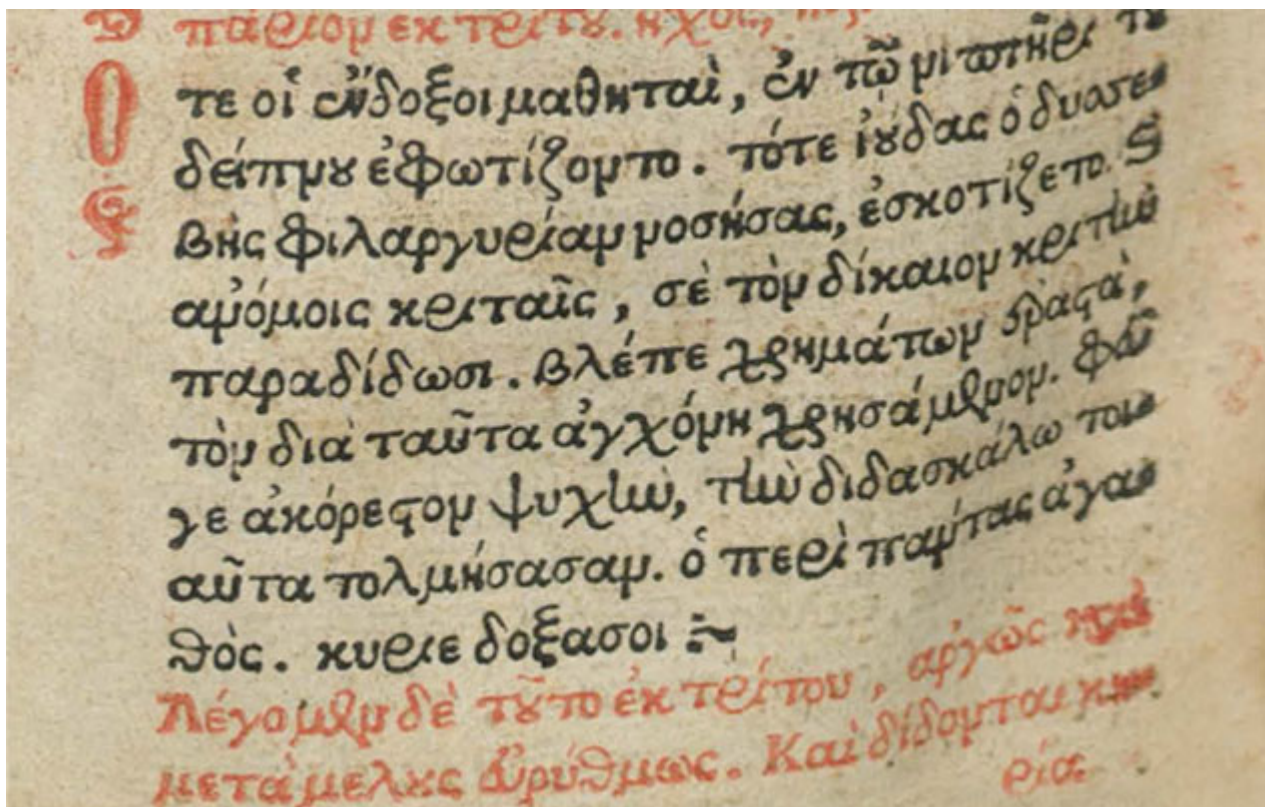 πάριον ἐκ τρίτου. ἦχος,
Ὅτε οἱ ἔνδοξοι μαθηταὶ, ἐν τῶ νιπτῆρι τοῦ
δείπνου ἐφωτίζοντο. τότε ἰούδας ὁ δυσσε
βὴς φιλαργυρίαν νοσήσας, ἐσκοτίζετο. καὶ
ἀνόμοις κριταῖς, σὲ τὸν δίκαιον κριτὴν
παραδίδωσι. βλέπε χρημάτων ἐραστὰ,
τὸν διὰ ταῦτα ἀγχόνη χρησάμενον. φεῦ
γε ἀκόρεστον ψυχὴν, τὴν διδασκάλω τοι
αῦτα τολμήσασαν. ὁ περὶ πάντας ἀγα
θὸς. κυριε δόξα σοι :~
Λέγομεν δὲ τοῦτο ἐκ τρίτου, ἀργῶς καὶ
μετὰ μέλους εὐρύθμως. Καὶ δίδονται κη
ρία.